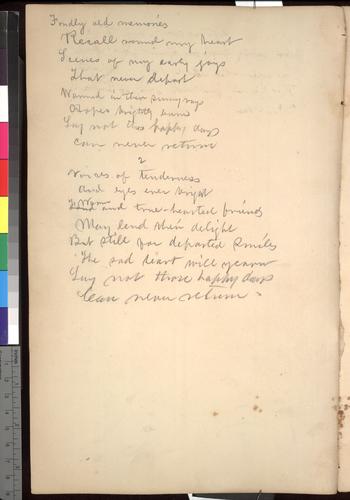 Fondly old memories
Recall round my heart
Scenes of my early joys
That never depart
Warmed in their sunny rays
Hopes brightly burn
Say not this happy days
can never return
2
Voices of tenderness
And eyes ever bright
Warm and true-hearted friends
May lend their delight
But still for departed Smiles
The sad heart will yearn
Say not those happy days
Can never return.